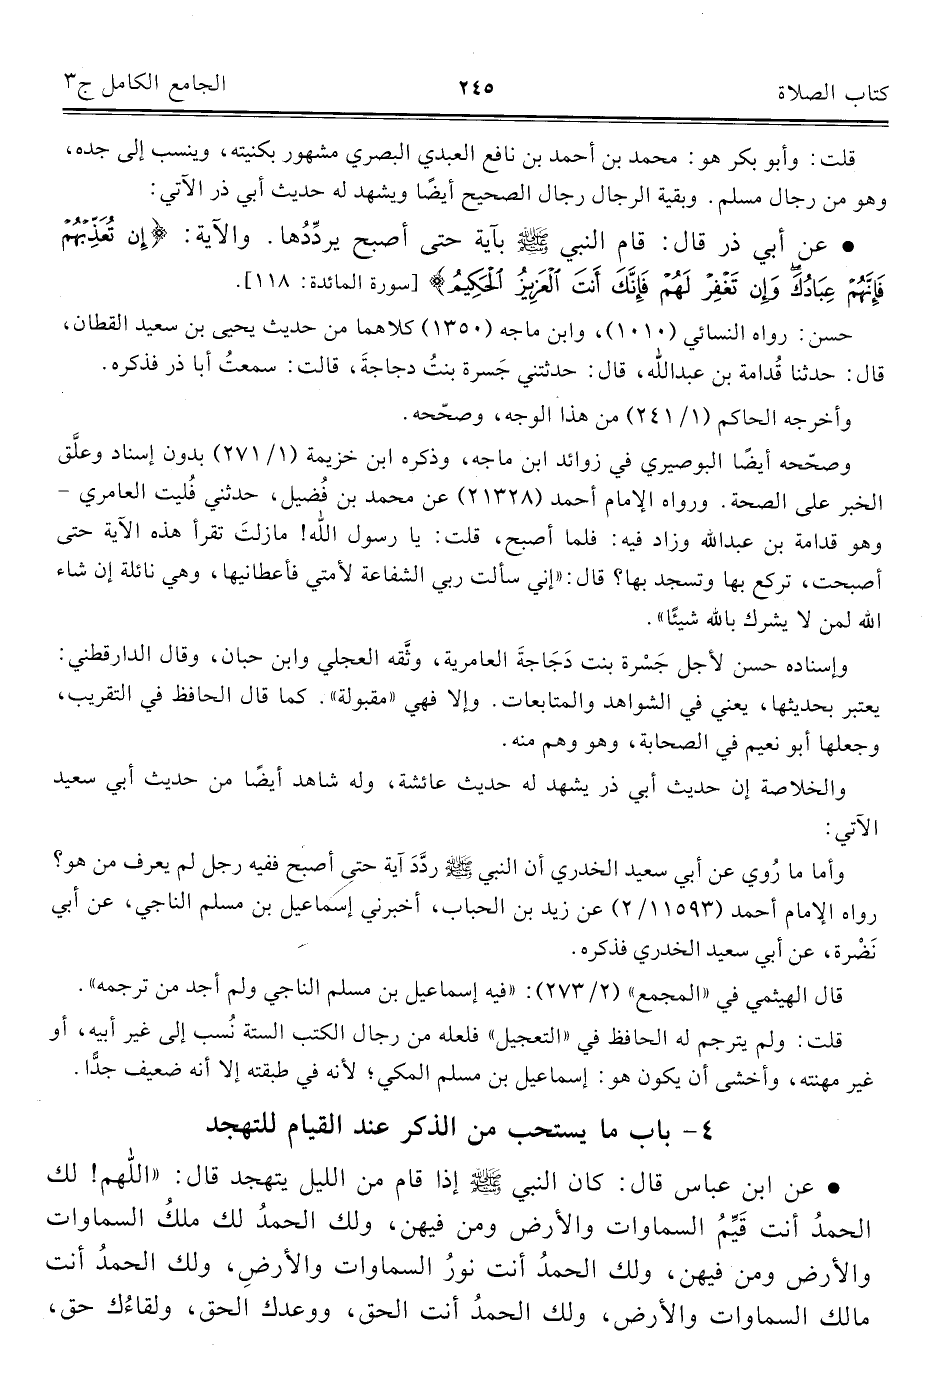 كتاب الصلاة ٢٤٥ الجامع الكامل ج٣
قلت: وأبو بكر هو: محمد بن أحمد بن نافع العبدي البصري مشهور بكنيته، وينسب إلى جده،
وهو من رجال مسلم. وبقية الرجال رجال الصحيح أيضًا ويشهد له حديث أبي ذر الآتي:
• عن أبي ذر قال: قام النبي ﷺ بآية حتى أصبح يردِّدُها. والآية: ﴿إِن تُعَذِّبْهُمْ
فَإِنَّهُمْ عِبَادُكَۖ وَإِن تَغْفِرْ لَهُمْ فَإِنَّكَ أَنتَ ٱلْعَزِيزُ ٱلْحَكِيمُ﴾ [سورة المائدة: ١١٨].
حسن: رواه النسائي (١٠١٠)، وابن ماجه (١٣٥٠) كلاهما من حديث يحيى بن سعيد القطان،
قال: حدثنا قُدامة بن عبدالله، قال: حدثتني جَسرة بنتُ دجاجةَ، قالت: سمعتُ أبا ذر فذكره.
وأخرجه الحاكم (١/ ٢٤١) من هذا الوجه، وصحّحه.
وصحّحه أيضًا البوصيري في زوائد ابن ماجه، وذكره ابن خزيمة (١/ ٢٧١) بدون إسناد وعلَّق
الخبر على الصحة. ورواه الإمام أحمد (٢١٣٢٨) عن محمد بن فُضيل، حدثني فُليت العامري -
وهو قدامة بن عبدالله وزاد فيه: فلما أصبح، قلت: يا رسول الله! مازلتَ تقرأ هذه الآية حتى
أصبحت، تركع بها وتسجد بها؟ قال:«إني سألت ربي الشفاعة لأمتي فأعطانيها، وهي نائلة إن شاء
الله لمن لا يشرك بالله شيئًا».
وإسناده حسن لأجل جَسْرة بنت دَجَاجةَ العامرية، وثَّقه العجلي وابن حبان، وقال الدارقطني:
يعتبر بحديثها، يعني في الشواهد والمتابعات. وإلا فهي «مقبولة». كما قال الحافظ في التقريب،
وجعلها أبو نعيم في الصحابة، وهو وهم منه.
والخلاصة إن حديث أبي ذر يشهد له حديث عائشة، وله شاهد أيضًا من حديث أبي سعيد
الآتي:
وأما ما رُوي عن أبي سعيد الخدري أن النبي ﷺ ردَّدَ آية حتى أصبح ففيه رجل لم يعرف من هو؟
رواه الإمام أحمد (١١٥٩٣/ ٢) عن زيد بن الحباب، أخبرني إسماعيل بن مسلم الناجي، عن أبي
نَضْرة، عن أبي سعيد الخدري فذكره.
قال الهيثمي في «المجمع» (٢/ ٢٧٣): «فيه إسماعيل بن مسلم الناجي ولم أجد من ترجمه».
قلت: ولم يترجم له الحافظ في «التعجيل» فلعله من رجال الكتب الستة نُسب إلى غير أبيه، أو
غير مهنته، وأخشى أن يكون هو: إسماعيل بن مسلم المكي؛ لأنه في طبقته إلا أنه ضعيف جدًّا.
٤- باب ما يستحب من الذكر عند القيام للتهجد
• عن ابن عباس قال: كان النبي ﷺ إذا قام من الليل يتهجد قال: «اللّٰهم! لك
الحمدُ أنت قَيِّمُ السماوات والأرض ومن فيهن، ولك الحمدُ لك ملكُ السماوات
والأرض ومن فيهن، ولك الحمدُ أنت نورُ السماوات والأرضِ، ولك الحمدُ أنت
مالك السماوات والأرض، ولك الحمدُ أنت الحق، ووعدك الحق، ولقاءُك حق،